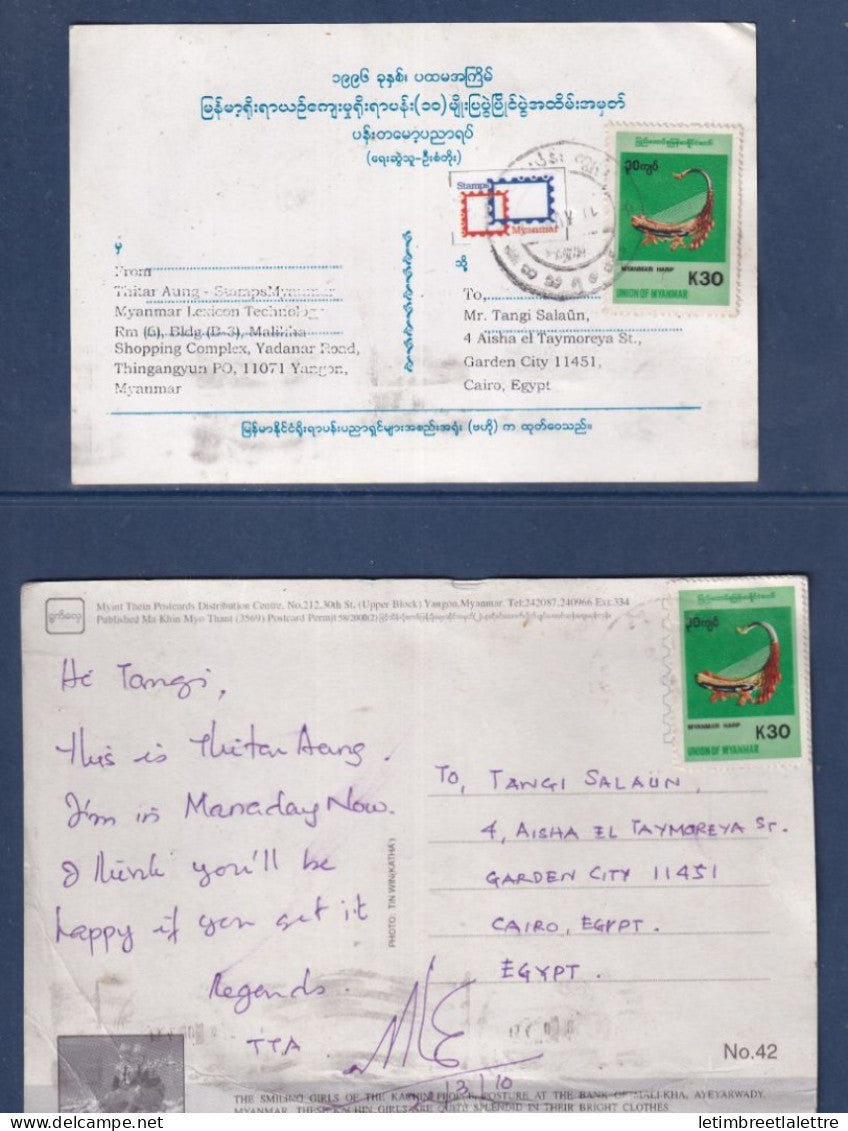 ၁၉၉၆ ခုနှစ်၊ ပထမအကြိမ်
မြန်မာ့ရိုးရာယဉ်ကျေးမှုရိုးရာပန်း(၁၀)မျိုးပြပွဲပြိုင်ပွဲအထိမ်းအမှတ်
ပန်းတမော့ပညာရပ်
(ရေးဆွဲသူ-ဦးစံတိုး)
၃၀ကျပ်
MYANMAR HARP
K30
UNION OF MYANMAR
Stamps
Myanmar
မှ
From
Thitar Aung - StampsMyanmar
Myanmar Lexicon Technology
Rm (6), Bldg.(B-3), Malikha
Shopping Complex, Yadanar Road,
Thingangyun PO, 11071 Yangon,
Myanmar
သို့
To,
Mr. Tangi Salaün,
4 Aisha el Taymoreya St.,
Garden City 11451,
Cairo, Egypt
မြန်မာနိုင်ငံရိုးရာပန်းပညာရှင်များအစည်းအရုံး (ဗဟို) က ထုတ်ဝေသည်။
Myint Thein Postcards Distribution Centre. No.212,30th St. (Upper Block) Yangon,Myanmar. Tel:242087,240966 Ext:334
Published Ma Khin Myo Thant (3569) Postcard Permit 58/2000(2)
၃၀ကျပ်
MYANMAR HARP
K30
UNION OF MYANMAR
Hi Tangi,
This is Thitar Aung.
I'm in Manaday Now.
I think you'll be
happy if you get it
Regards.
TTA
PHOTO: TIN WIN(KATHA)
TO, TANGI SALAÜN,
4, AISHA EL TAYMOREYA ST.
GARDEN CITY 11451
CAIRO, EGYPT.
EGYPT.
No.42
THE SMILING GIRLS OF THE KACHIN PEOPLE, POSTURE AT THE BANK OF MALI-KHA, AYEYARWADY,
MYANMAR. THESE KACHIN GIRLS ARE QUITE SPLENDID IN THEIR BRIGHT CLOTHES
letimbreetlalettre